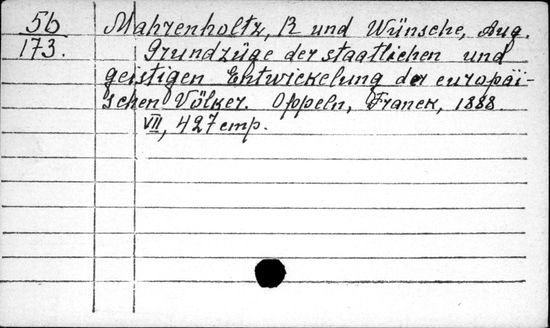 56 Mahrenholtz, R und Wünsche, Aug.
173. Grundzüge der staatlichen und
geistigen Entwickelung der europäi-
schen Völker. Oppeln, Franck, 1888.
VII, 427 стр.